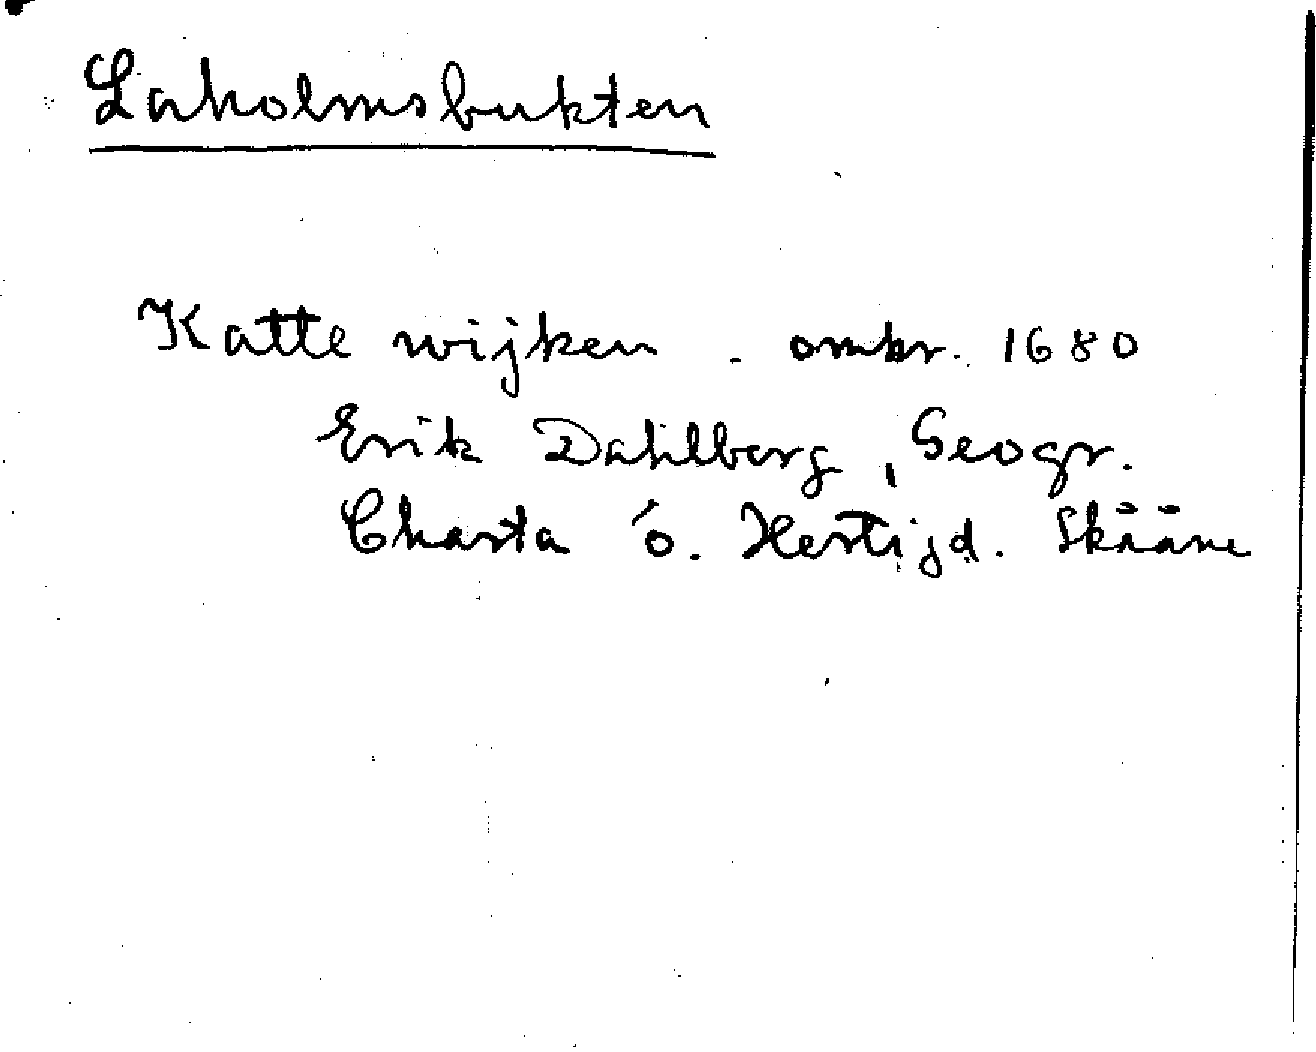 Laholmsbukten
Katte wijken . omkr. 1680
Erik Dahlberg, Geogr.
Charta ó. Hertijd. Skååne